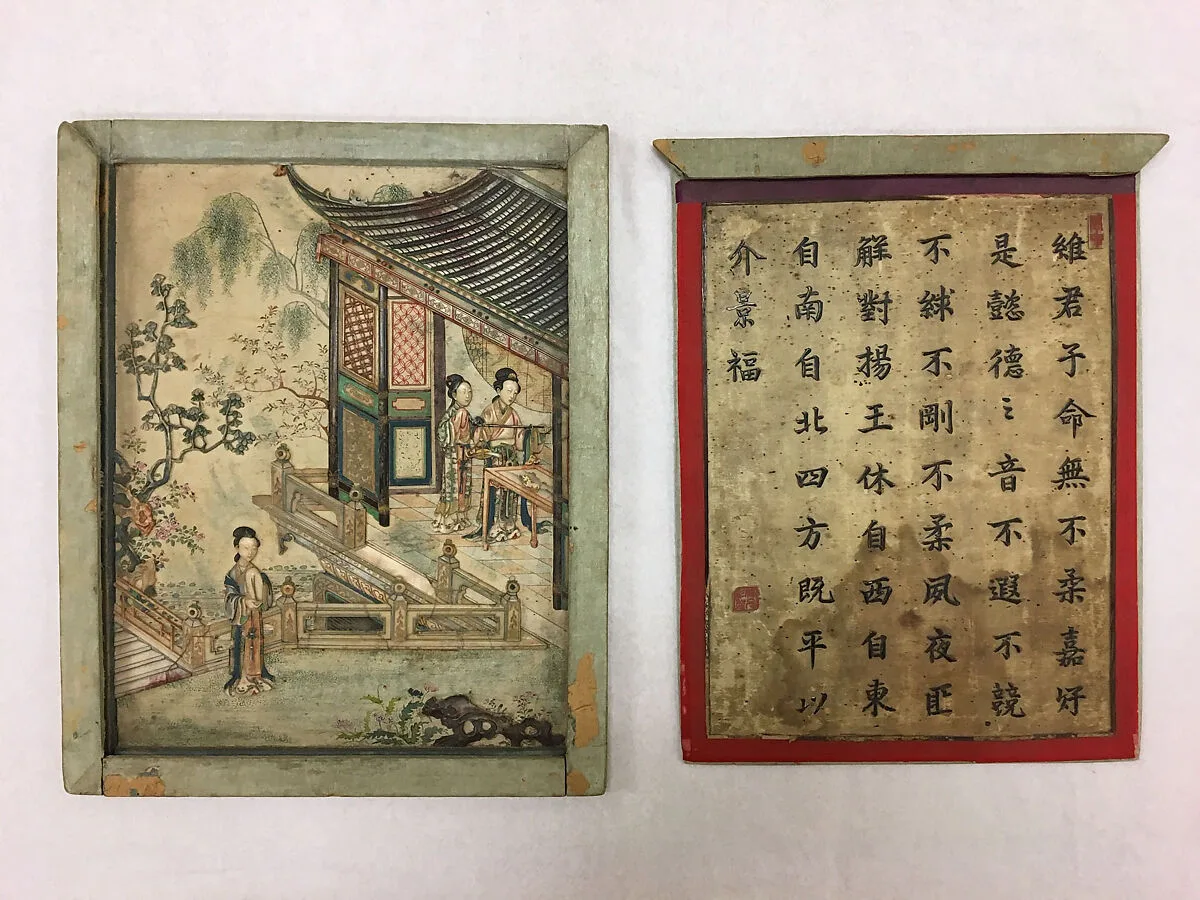 維君子命無不柔嘉好
是懿德之音不遐不競
不絿不剛不柔夙夜匪
觧對揚王休自西自東
自南自北四方既平以
介景福